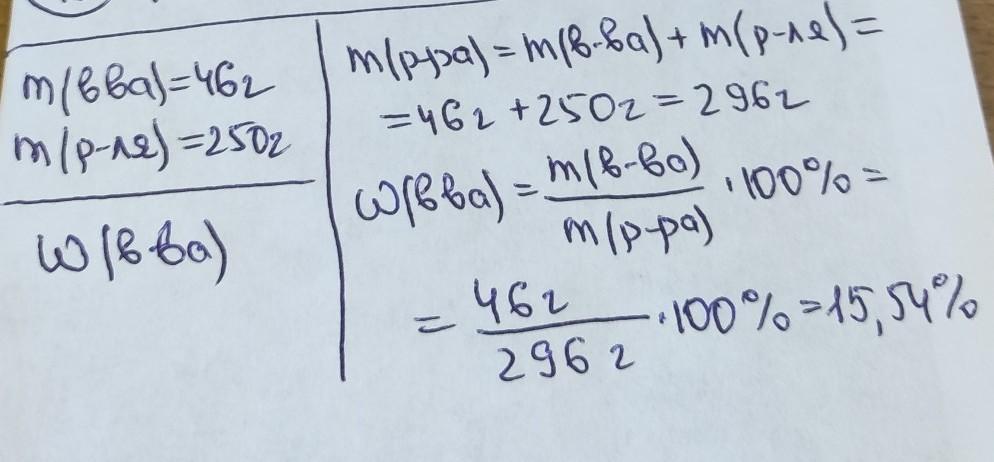 m(в-ва)=46г
m(р-ля)=250г
ω(в-ва)
m(р-ра)=m(в-ва)+m(р-ля)=
=46г+250г=296г
ω(в-ва)=m(в-ва)/m(р-ра)·100%=
=46г/296г·100%=15,54%